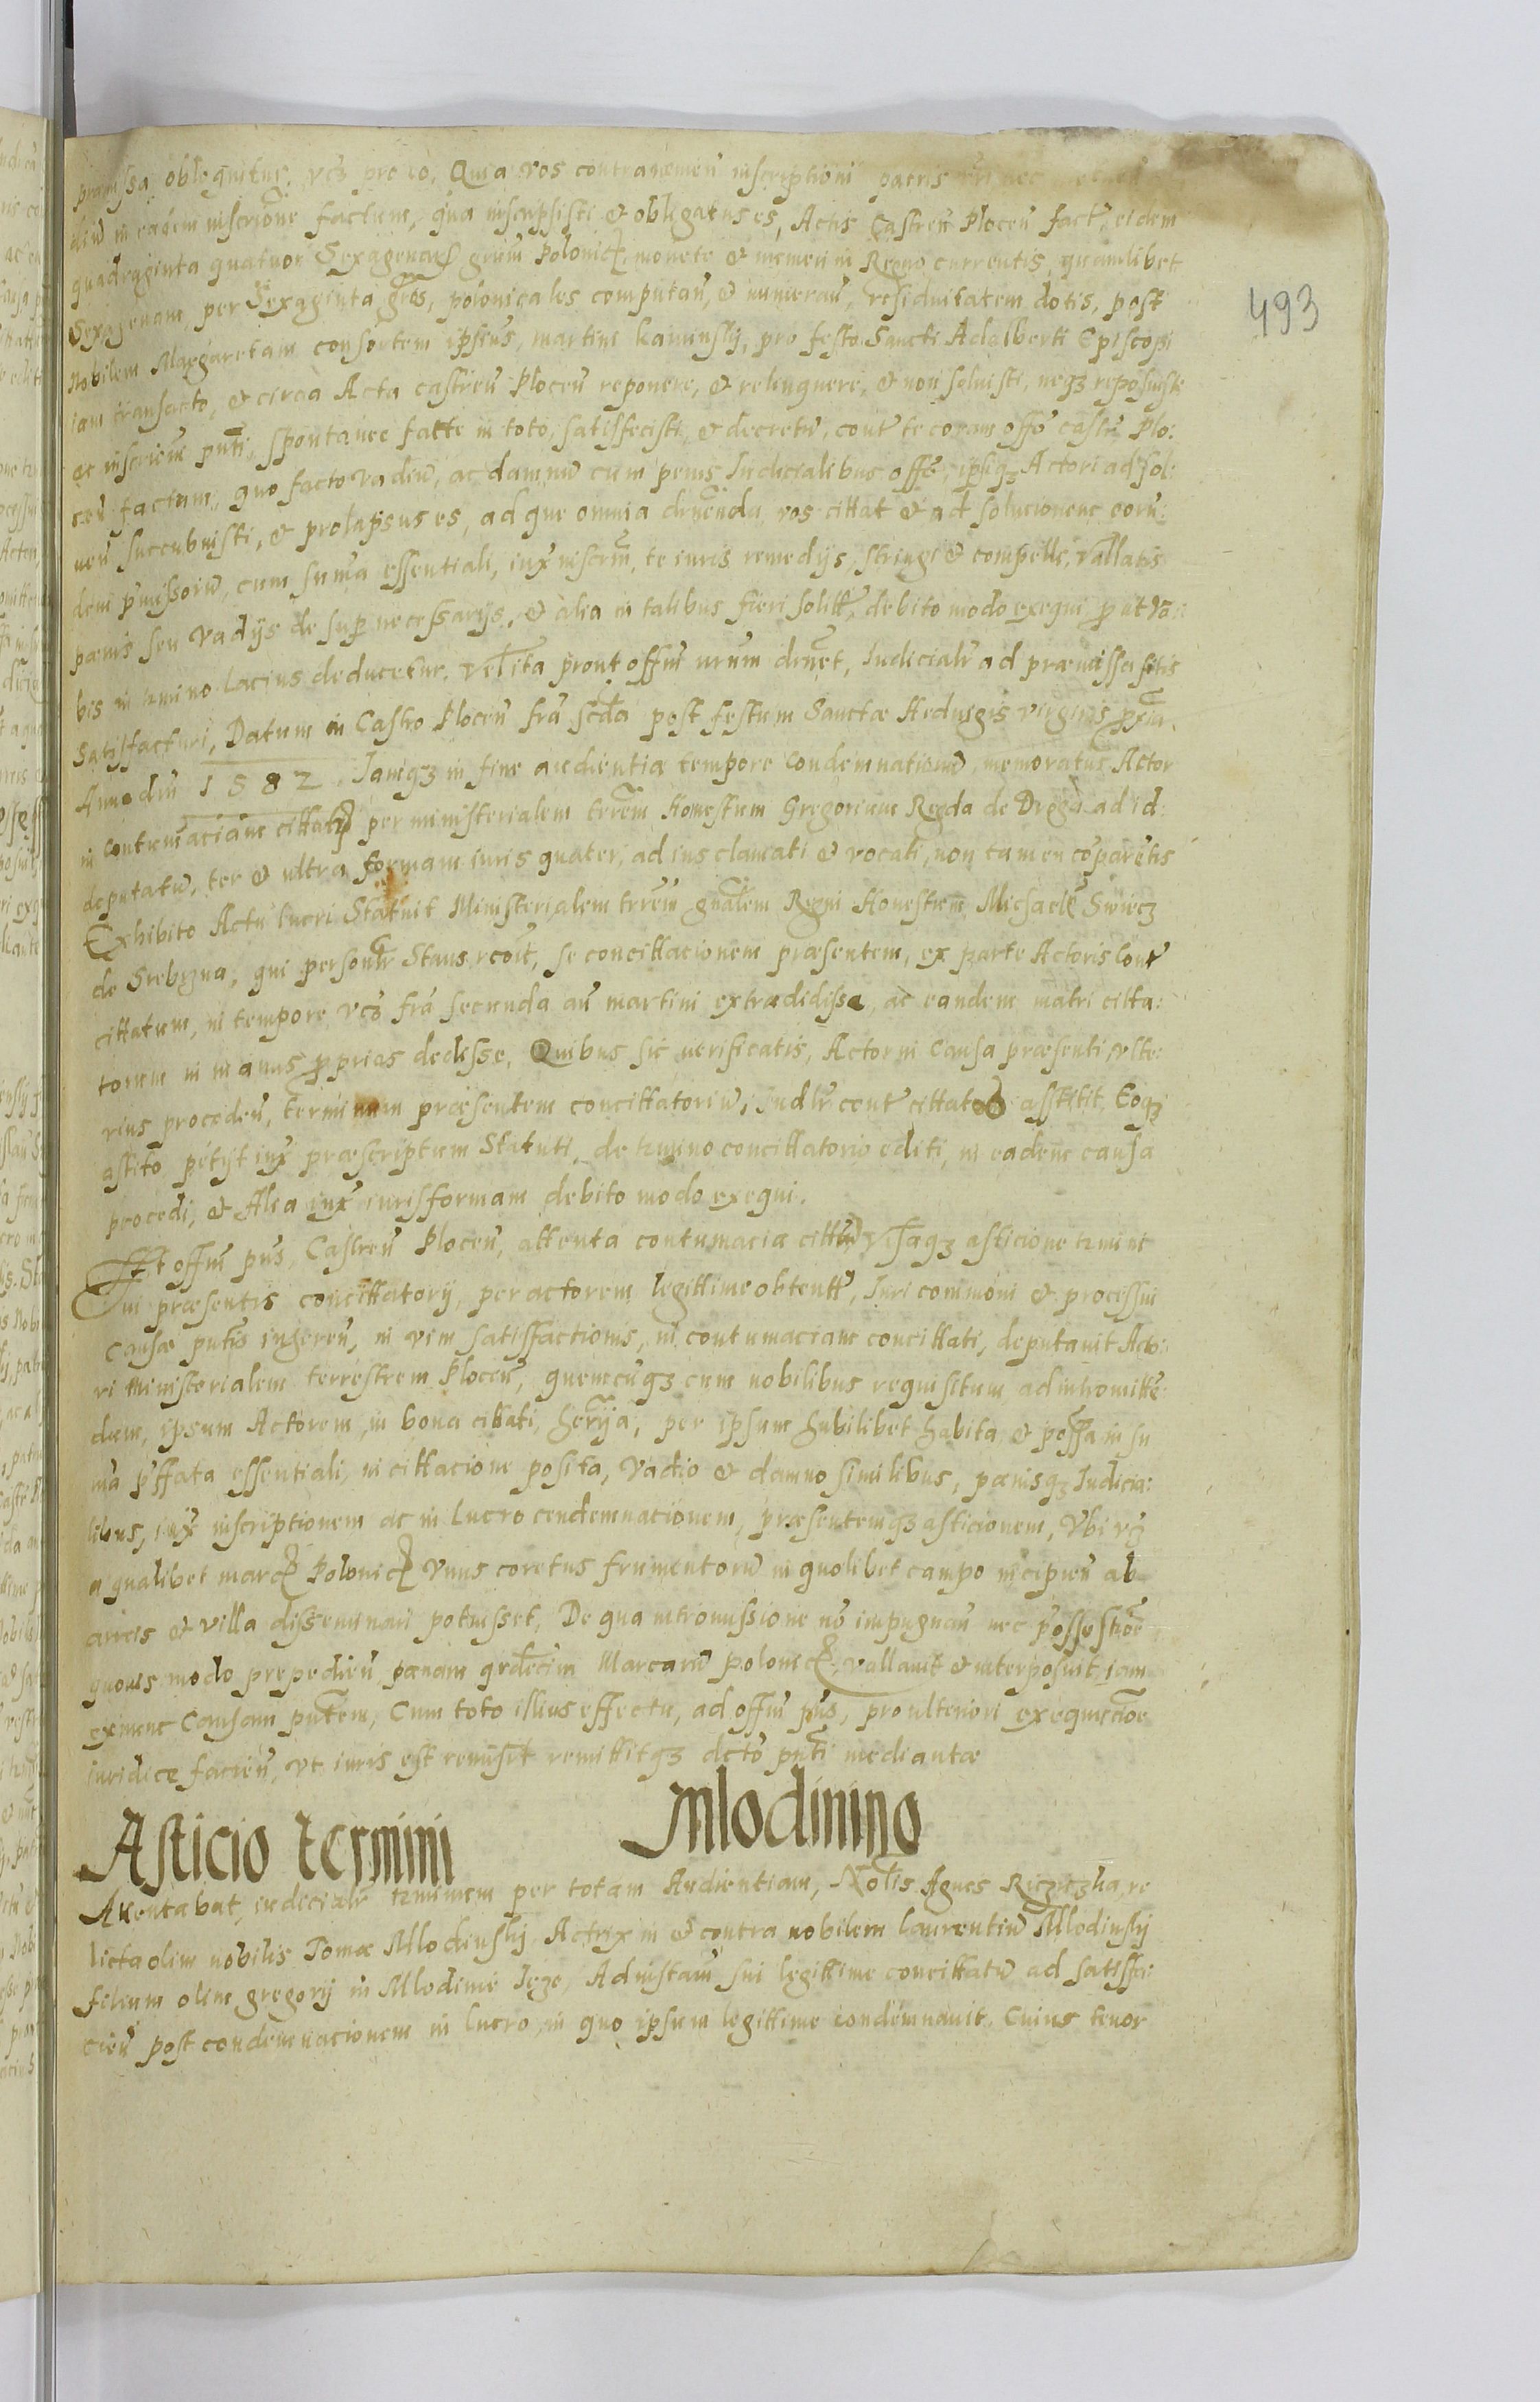 præmissa obloquitur, vcz pro eo, Quia vos contravenieñ inscriptioni patris vri nec
diũ in eadem inscrione factum, qua inscripsisti et obligatus es, Actis Castreñ Ploceñ fact, eidem
quadraginta quatuor Sexagenas grũm Polonic, monete et numeri in Regno currentis, quamlibet
Sexagenam per Sexaginta gros, polonicales computañ, et numerañ, residuitatem dotis, post
Nobilem Margaretam consortem ipsius, martini kaminsky, pro festo Sancti Adalberti Episcopi
iam transacto, et circa Acta castreñ Ploceñ reponere, et relinquere, et non solvisti, neqз reposuisti
ac inscrieñ pnti, spontanee facte in toto, satisfecisti, et decretũ, contr te coram offo castr Plo:
ceñ factum, quo facto vadiũ, ac damnũ cum penis Iudicialibus offo, ipsiqз Actori ad sol:
veñ succubuisti, et prolapsus es, ad que omnia divenda vos cittat et ad solucionem eorũ:
dem pmissorũ, cum summa essentiali, iux inscrim, te iuris remedijs, stringi et compelli, vallatis
pænis seu vadijs de sup necessarijs, et alia in talibus fieri solitt, debito modo exequi prout vo:
bis in tmino lacius deducetur, velita prout offm vrum divet, Iudicialr ad præmissa sitis
Satisfacturi, Datum in Castro Ploceñ fra scda post festum Sanctæ Hedvigis virginis proxim.
Anno dni 1582. Iamqз in fine audientiæ tempore Condemnationũ, memoratus Actor
in contumaciam cittatj per ministerialem trrem Honestum Gregorium Regda de Degda ad id
deputatũ, ter et ultra formam iuris quater, ad ius clamati et vocati, non tamen cõparetis
Exhibito Actu lucri Statuit Ministerialem trrem gnalem Regni Honestum Michaelẽ Swiecz
de Srebrzna, qui personlr Stans rcoit, se concittacionem præsentem, ex parte Actoris Contr
cittatum, in tempore vcõ fra secunda añ martini extradidisse, ac eandem matri citta:
torum in manus pprias dedisse, Quibus sic uerificatis, Actor in Causa præsenti, vlte:
rius procedeñ, terminum præsentem concittatoriũ, Iudlr contr cittatos asstitit, Eoqз
astito petijt iux præscriptum Statuti, de tmino concittatorio editi, in eadem causa
procedi, et Alia iux iurisformam debito modo exequi.
Et offm pns, Castreñ Ploceñ, attenta contumacia citti Visaqз asticione tmini
sui præsentis concittatorij, per actorem legittime obtentt, Iuri communi et processui
Causæ pntis ingereñ, in vim satisfactionis, in contumaciam concittati, deputavit Acto:
ri Ministerialem terrestrem Ploceñ, quemcũqз cum nobilibus requisitum ad intromitte:
dum, ipsum Actorem, in bona cittati, herija, per ipsum hubilibet habita et possa in su
ma pffata essentiali, in cittacione posita, Vadio et damno similibus, pænisqз Iudicia:
libus, iux inscriptionem ac in Lucro condemnacionem, præsentemqз asticionem, Vbi vcz
a qualibet marc Polonic Vnus coretus frumentorũ in quolibet campo incipieñ ab
areis et villa disseminari potuisset, De qua intromissione nõ impugnañ nec possessioẽ
quovis modo prepedieñ pænam qrdecim Marcarũ polonic, vallavit et interposuit, iam
exnunc Causam pntem, Cum toto illius effectu, ad offm pns, pro ulteriori exequucioe
iuridice facieñ, vt iuris est remisit remittitqз dcto pnti mediantæ
Asticio termini Mlodinino
Attentabat, iudicialr tminum per totam Audientiam, Nolis Agnes Riczиczka, re
licta olim nobilis Tomæ Mlodinsky Actrix in et contra nobilem laurentiũ Mlodinsky
filium olim gregorij in Mlodine Ieze, Ad instam sui legittime concittatũ ad satisfa:
cieñ post condemnacionem in lucro, in quo ipsum legittime condemnavit, Cuius tenor
493